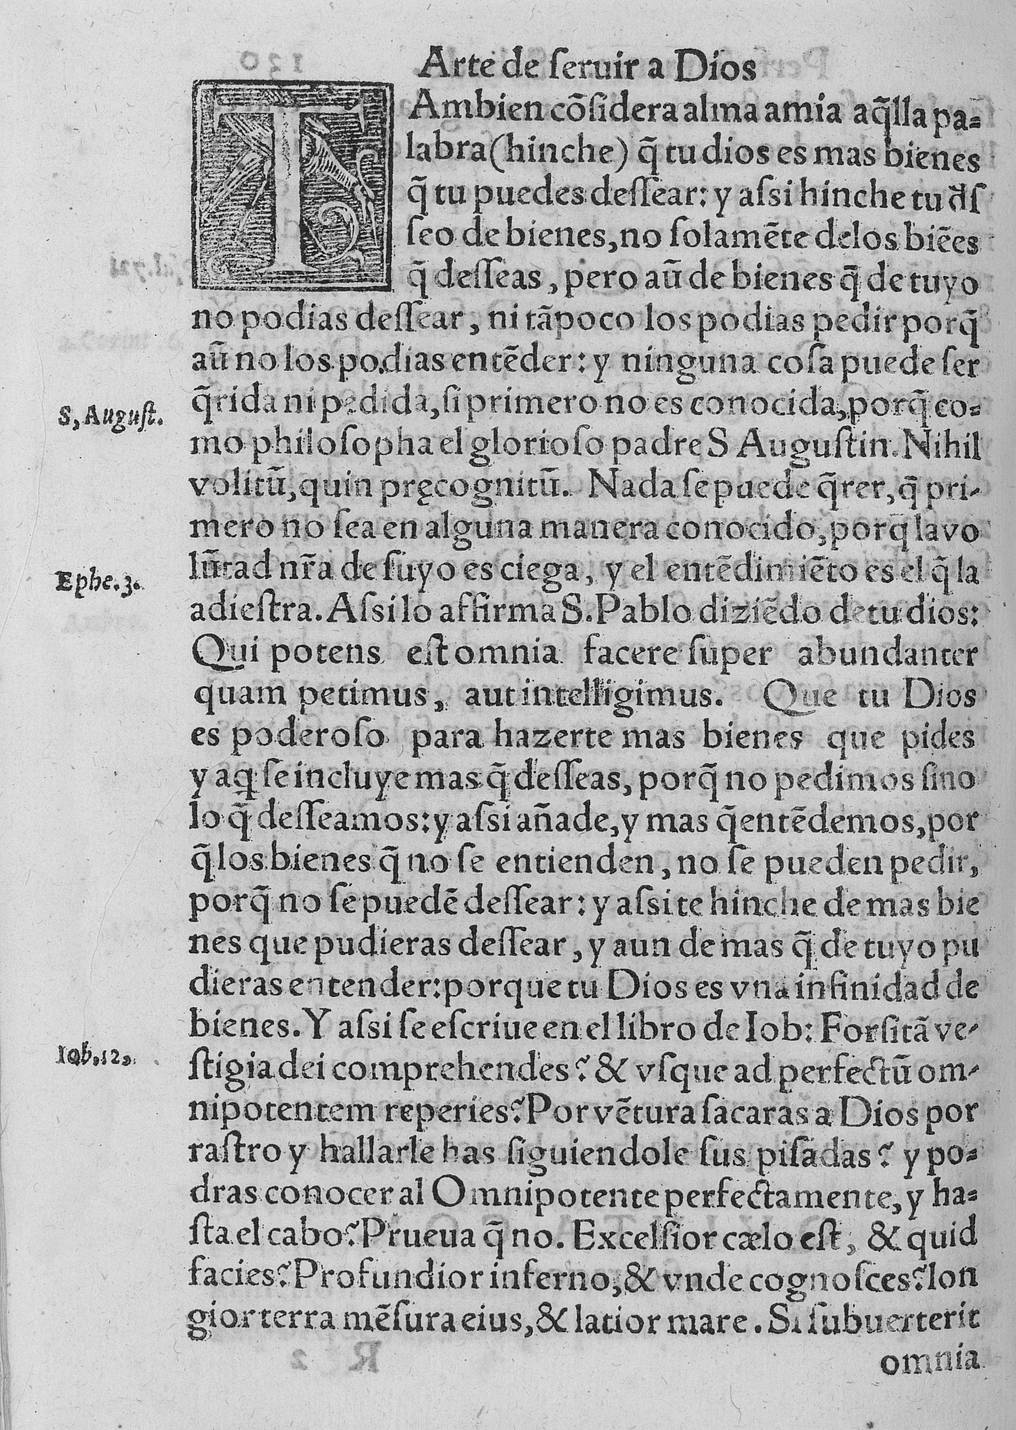 Arte de ſeruir a Dios
TAmbien cõſidera alma a mia aq̃lla pa-
labra (hinche) q̃ tu dios es mas bienes
q̃ tu puedes deſſear: y aſsi hinche tu d̃ſ
ſeo de bienes, no ſolamẽte delos biẽes
q̃ deſſeas, pero aũ de bienes q̃ de tuyo
no podias deſſear, ni tãpoco los podias pedir porq̃
aũ no los podias entẽder: y ninguna coſa puede ſer
q̃rida ni pedida, ſi primero no es conocida, porq̃ co-
S, Auguſt.
mo philoſopha el glorioſo padre S Auguſtin. Nihil
volitũ, quin pręcognitũ. Nada ſe puede q̃rer, q̃ pri-
mero no ſea en alguna manera conocido, porq̃ la vo
Ephe. 3.
lũtad nr̃a de ſuyo es ciega, y el entẽdimiẽto es el q̃ la
adieſtra. Aſsi lo affirma S. Pablo diziẽdo de tu dios:
Qui potens eſt omnia facere ſuper abundanter
quam petimus, aut intelligimus. Que tu Dios
es poderoſo para hazerte mas bienes que pides
y aq̃ ſe incluye mas q̃ deſſeas, porq̃ no pedimos ſino
lo q̃ deſſeamos: y aſsi añade, y mas q̃ entẽdemos, por
q̃ los bienes q̃ no ſe entienden, no ſe pueden pedir,
porq̃ no ſe puedẽ deſſear: y aſsi te hinche de mas bie
nes que pudieras deſſear, y aun de mas q̃ de tuyo pu
dieras entender: porque tu Dios es vna infinidad de
bienes. Y aſsi ſe eſcriue en el libro de Iob: Forſitã ve-
Iob, 12,
ſtigia dei comprehendes? & vſque ad perfectũ om-
nipotentem reperies? Por vẽtura ſacaras a Dios por
raſtro y hallarle has ſiguiendole ſus piſadas? y po-
dras conocer al Omnipotente perfectamente, y ha-
ſta el cabo? Prueua q̃ no. Excelſior cælo eſt, & quid
facies? Profundior inferno, & vnde cognoſces? lon
gior terra mẽſura eius, & latior mare. Si ſubuerterit
omnia